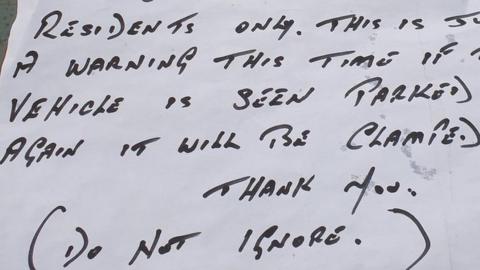 RESIDENTS ONLY. THIS IS
A WARNING THIS TIME IF
VEHICLE IS SEEN PARKED
AGAIN IT WILL BE CLAMPED.
THANK YOU.
(DO NOT IGNORE.)